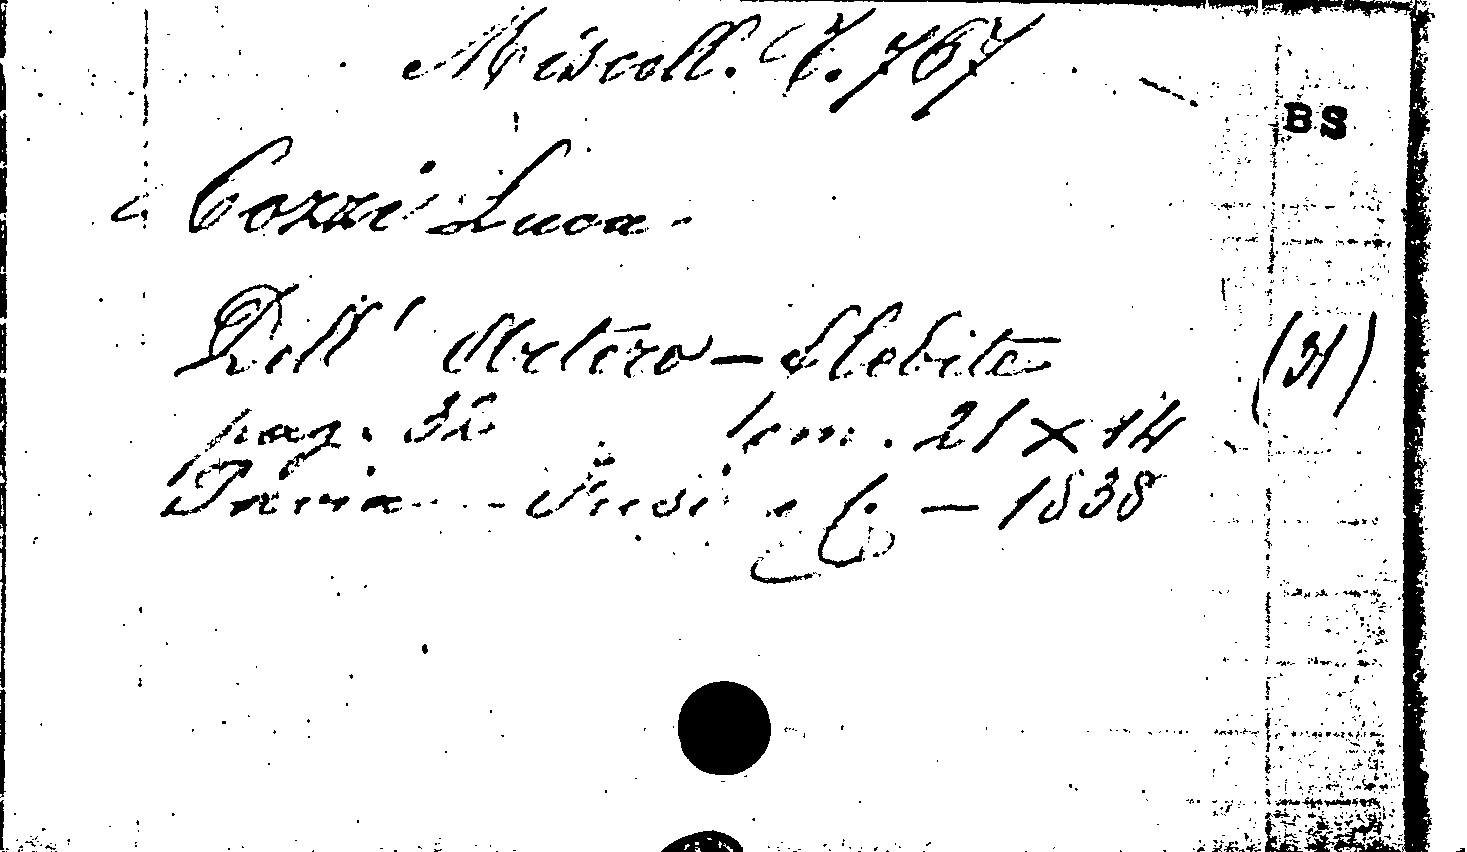 Miscell. C. 767
BS
Cozzi Luca -
Dell' Metero - flebite (31)
pag. 32 cm. 21 x 14
Pavia - Fusi e C. - 1838